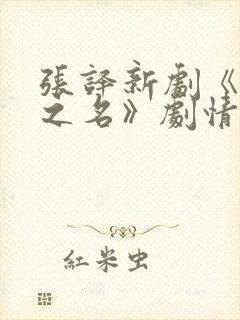 張譯新劇《
之名》劇情
紅米虫